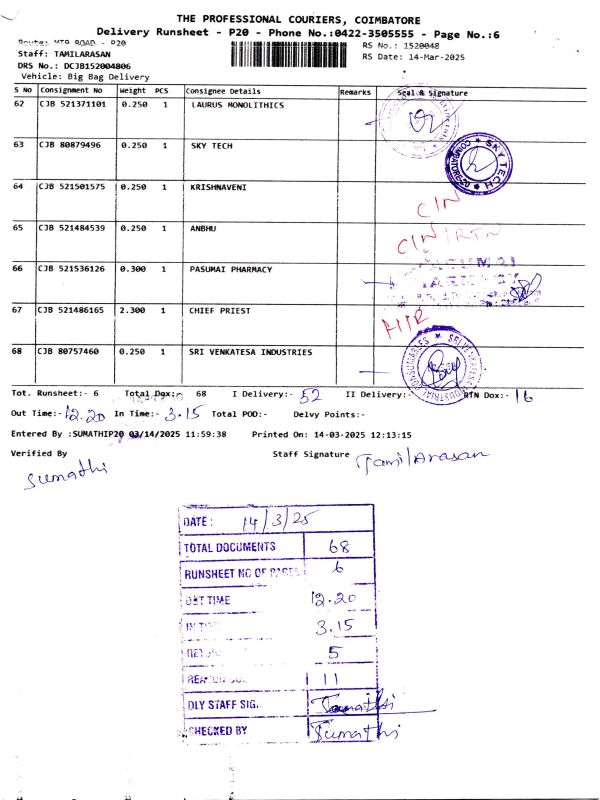 THE PROFESSIONAL COURIERS, COIMBATORE
Delivery Runsheet - P20 - Phone No.:0422-3505555 - Page No.:6
Route: MTP ROAD - P20
RS No.: 1520048
Staff: TAMILARASAN
RS Date: 14-Mar-2025
DRS No.: DCJB152004806
Vehicle: Big Bag Delivery
S No Consignment No Weight PCS Consignee Details Remarks Seal & Signature
62 CJB 521371101 0.250 1 LAURUS MONOLITHICS
63 CJB 80879496 0.250 1 SKY TECH
SKY TECH COIMBATORE
64 CJB 521501575 0.250 1 KRISHNAVENI
C/N
65 CJB 521484539 0.250 1 ANBHU
C/N/RTN
66 CJB 521536126 0.300 1 PASUMAI PHARMACY
67 CJB 521486165 2.300 1 CHIEF PRIEST
68 CJB 80757460 0.250 1 SRI VENKATESA INDUSTRIES
Tot. Runsheet:- 6 Total Dox: 68 I Delivery:- 52 II Delivery:- RTN Dox:- 16
Out Time:- 12.20 In Time:- 3.15 Total POD:- Delvy Points:-
Entered By :SUMATHIP20 03/14/2025 11:59:38 Printed On: 14-03-2025 12:13:15
Verified By Staff Signature TamilArasan
Sumathi
DATE : 14/3/25
TOTAL DOCUMENTS 68
RUNSHEET NO OF PAGES 6
OUT TIME 12.20
IN TIME 3.15
5
11
DLY STAFF SIG.
CHECKED BY Sumathi